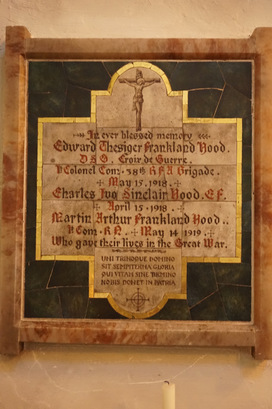 In ever blessed memory
Edward Thesiger Frankland Hood.
D.S.O. Croix de Guerre.
Lt Colonel Com: 38th R.F.A. Brigade.
May 15. 1918.
Charles Ivo Sinclair Hood. E.F.
April 15. 1918.
Martin Arthur Frankland Hood..
Lt Com. R.N. May 14 1919.
Who gave their lives in the Great War.
UNI TRINOQUE DOMINO
SIT SEMPITERNA GLORIA
QUI VITAM SINE TERMINO
NOBIS DONET IN PATRIA